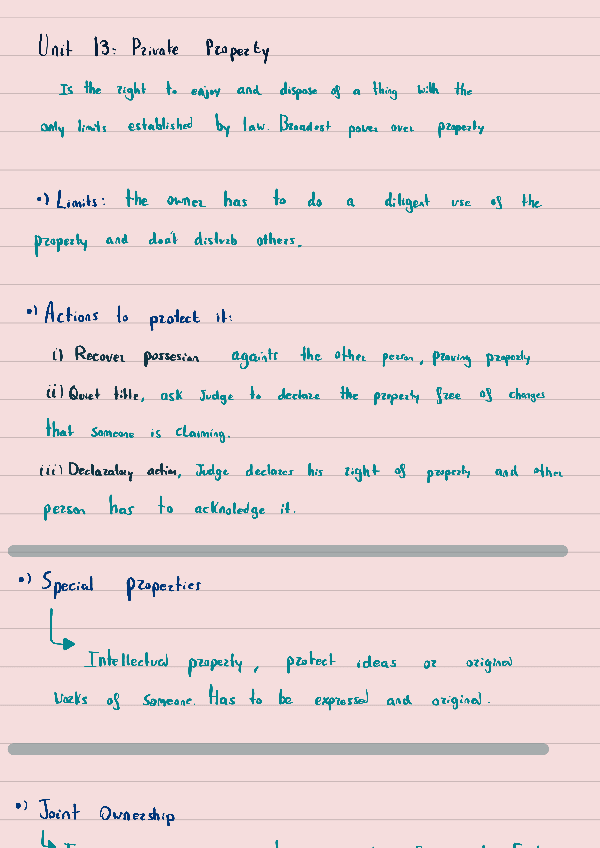 Unit 13: Private Property
Is the right to enjoy and dispose of a thing with the
only limits established by law. Broadest power over property
•) Limits: the owner has to do a diligent use of the
property and don't disturb others.
•) Actions to protect it:
i) Recover possesion againts the other person, proving property
ii) Quiet title, ask Judge to declare the property free of charges
that someone is claiming.
iii) Declaratory action, Judge declares his right of property and other
person has to acknoledge it.
•) Special properties
Intellectual property, protect ideas or original
works of someone. Has to be expressed and original.
•) Joint Ownership